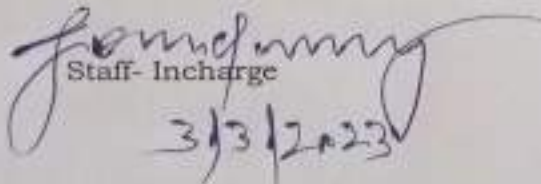 Staff- Incharge
3/3/2023